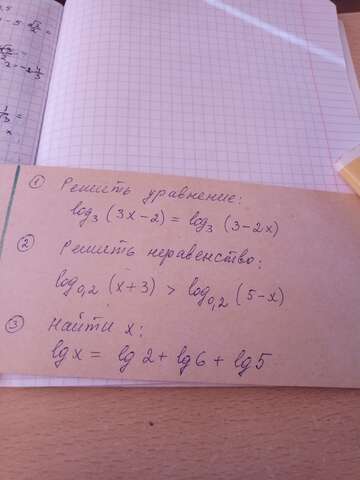 ① Решить уравнение:
log₃ (3x-2) = log₃ (3-2x)
② Решить неравенство:
log₀,₂ (x+3) > log₀,₂ (5-x)
③ Найти x:
lg x = lg 2 + lg 6 + lg 5